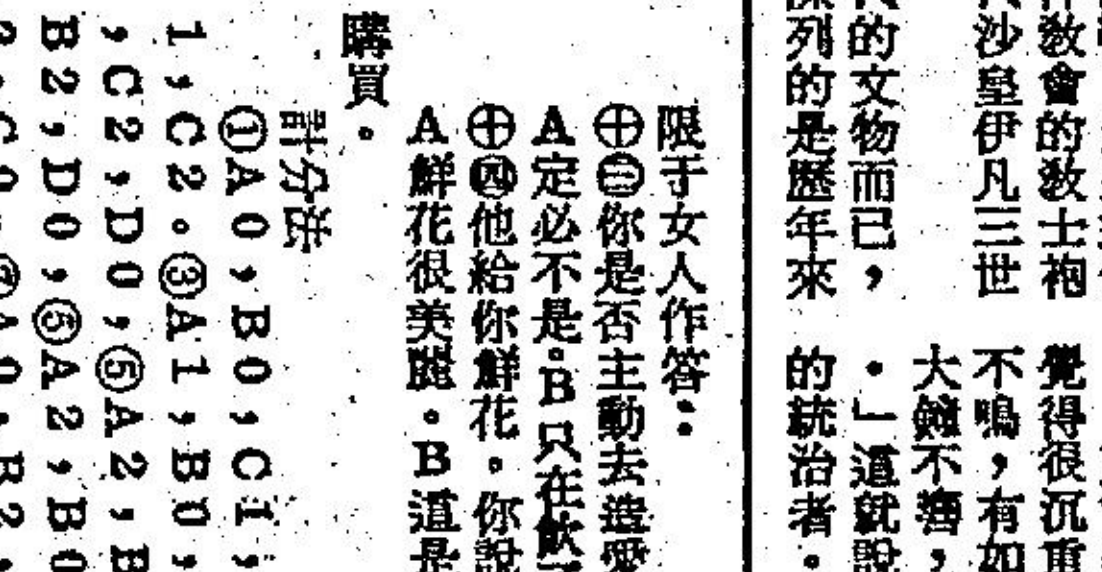 教會的教士袍
沙皇伊凡三世
的文物而已,
列的是歷年來
覺得很沉重
不鳴,有如
大鐘不響,
·」這就說
的統治者。
限于女人作答:
⊕㊂你是否主動去造愛
A定必不是。B只在飲
⊕㊃他給你鮮花。你說
A鮮花很美麗。B這是
購買。
計分法
①A0,B0,C1,
1,C2。③A1,B0,
,C2,D0,⑤A2,B
B2,D0,⑥A2,B0